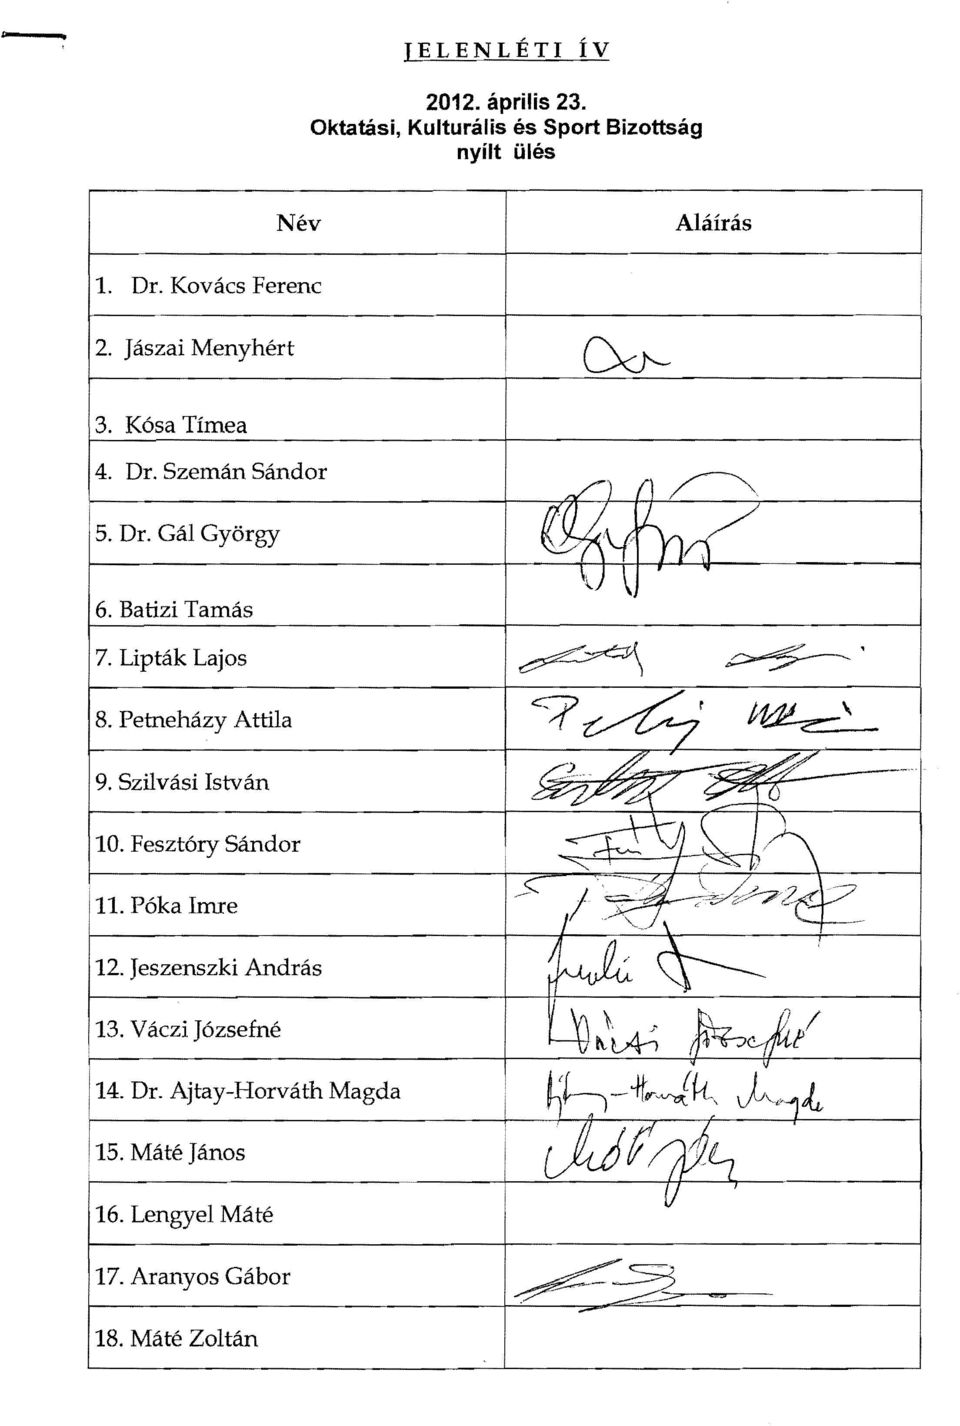 JELENLÉTI ÍV
2012. április 23.
Oktatási, Kulturális és Sport Bizottság
nyílt ülés
Név Aláírás
1. Dr. Kovács Ferenc
2. Jászai Menyhért
3. Kósa Tímea
4. Dr. Szemán Sándor
5. Dr. Gál György
6. Batizi Tamás
7. Lipták Lajos
8. Petneházy Attila
9. Szilvási István
10. Fesztóry Sándor
11. Póka Imre
12. Jeszenszki András
13. Váczi Józsefné Váczi Józsefné
14. Dr. Ajtay-Horváth Magda Ajtay-Horváth Magda
15. Máté János Máté János
16. Lengyel Máté
17. Aranyos Gábor
18. Máté Zoltán